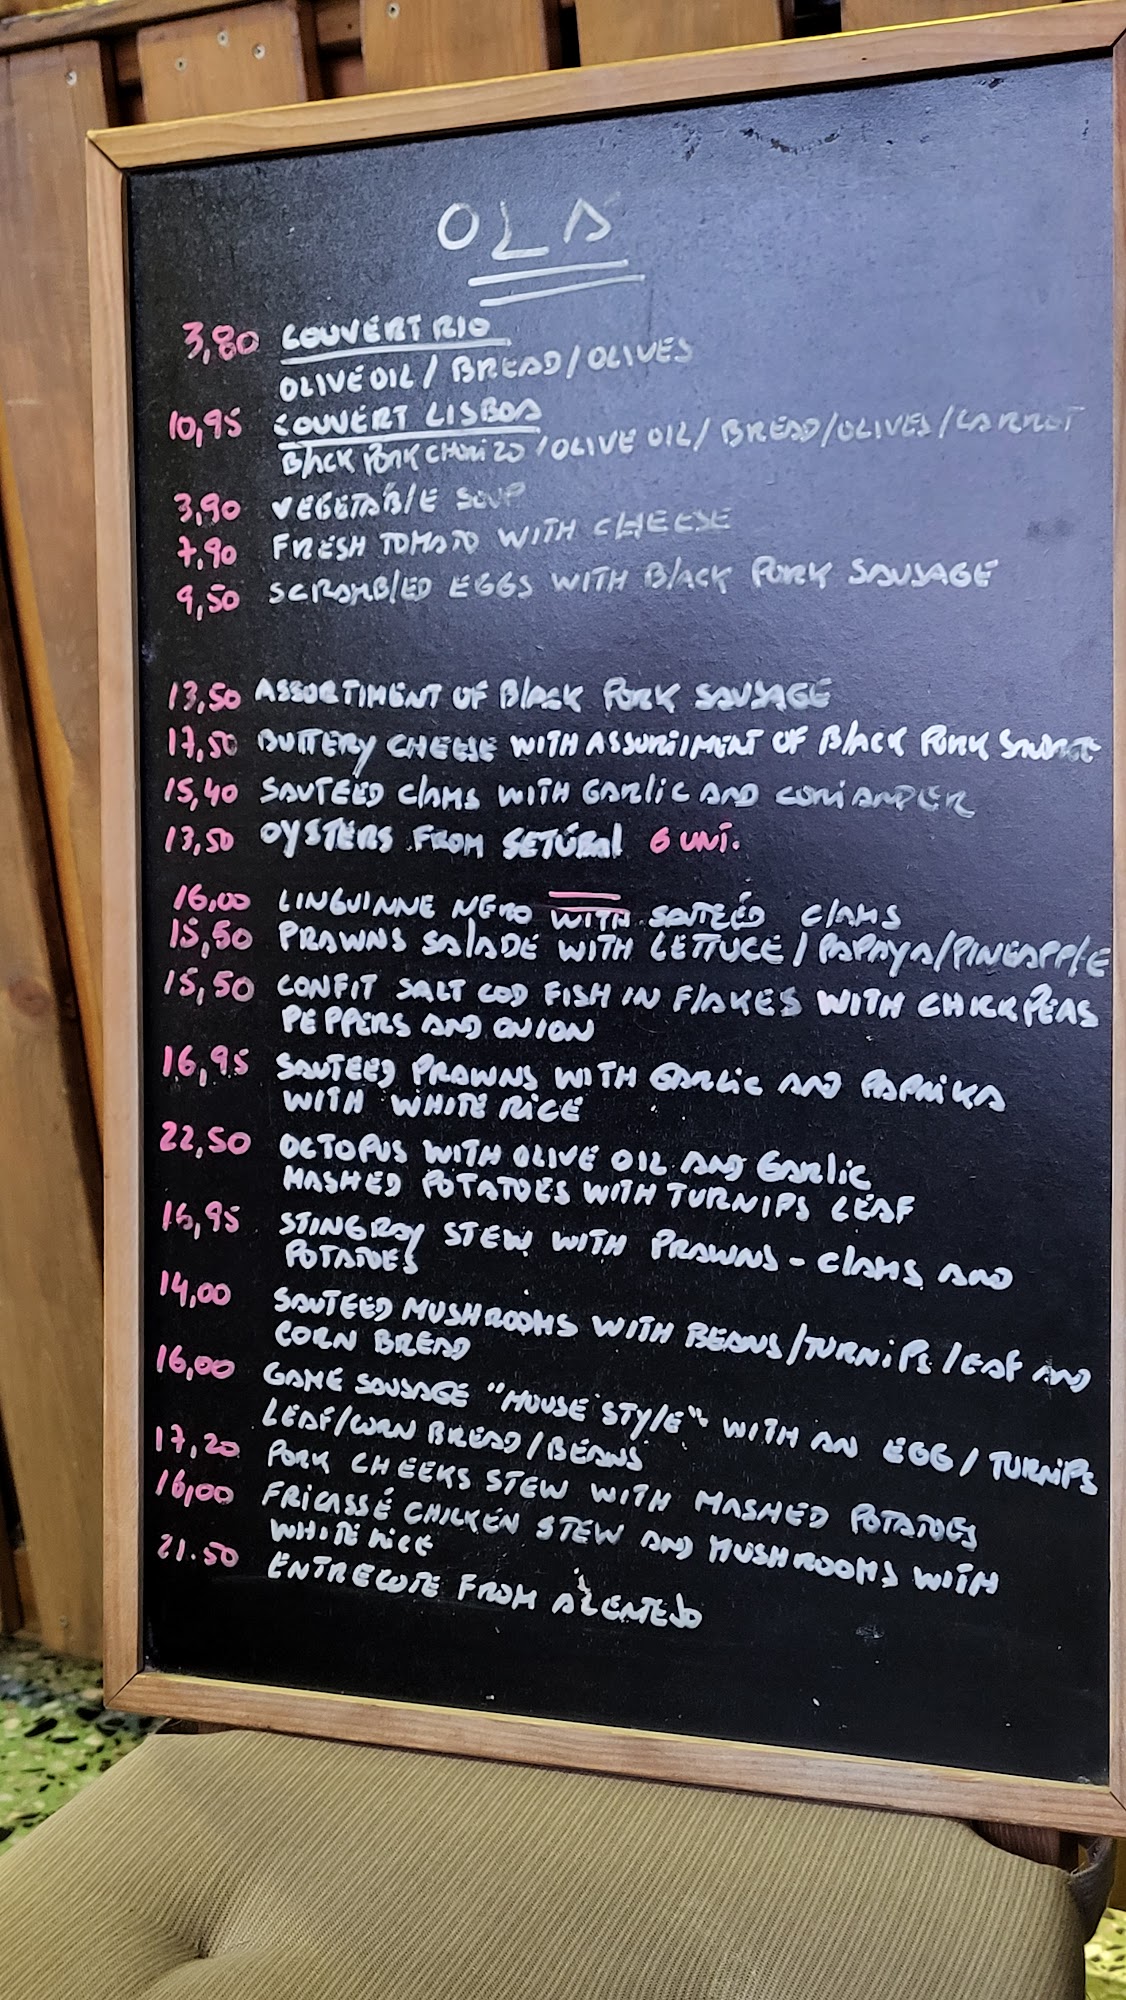 OLA
3,80 COUVERT RIO
OLIVE OIL / BREAD / OLIVES
10,95 COUVERT LISBOA
BlACK PORK CHORIZO / OLIVE OIL / BREAD / OLIVES / CARROT
3,90 VEGETABlE SOUP
7,90 FRESH TOMATO WITH CHEESE
9,50 SCRAMBlED EGGS WITH BlACK PORK SAUSAGE
13,50 ASSORTIMENT OF BlACK PORK SAUSAGE
17,50 BUTTERY CHEESE WITH ASSORTIMENT OF BlACK PORK SAUSAGE
15,40 SAUTEÉD ClAMS WITH GARLIC AND CORIANDER
13,50 OYSTERS FROM SETÚBAl 6 UNI.
16,00 LINGUINNE NERO WITH SAUTEÉD ClAMS
15,50 PRAWNS SAlADE WITH LETTUCE / PAPAYA / PINEAPPlE
15,50 CONFIT SALT COD FISH IN FlAKES WITH CHICKPEAS
PEPPERS AND ONION
16,95 SAUTEED PRAWNS WITH GARLIC AND PAPRIKA
WITH WHITE RICE
22,50 OCTOPUS WITH OLIVE OIL AND GARLIC
MASHED POTATOES WITH TURNIPS LEAF
16,95 STINGRAY STEW WITH PRAWNS - ClAMS AND
POTATOES
14,00 SAUTEED MUSHROOMS WITH BEANS / TURNIPS lEAF AND
CORN BREAD
16,00 GAME SAUSAGE "HOUSE STYlE" WITH AN EGG / TURNIPS
LEAF / CORN BREAD / BEANS
17,20 PORK CHEEKS STEW WITH MASHED POTATOES
16,00 FRICASSÉ CHICKEN STEW AND MUSHROOMS WITH
WHITE RICE
21.50 ENTRECOTE FROM ALENTEJO